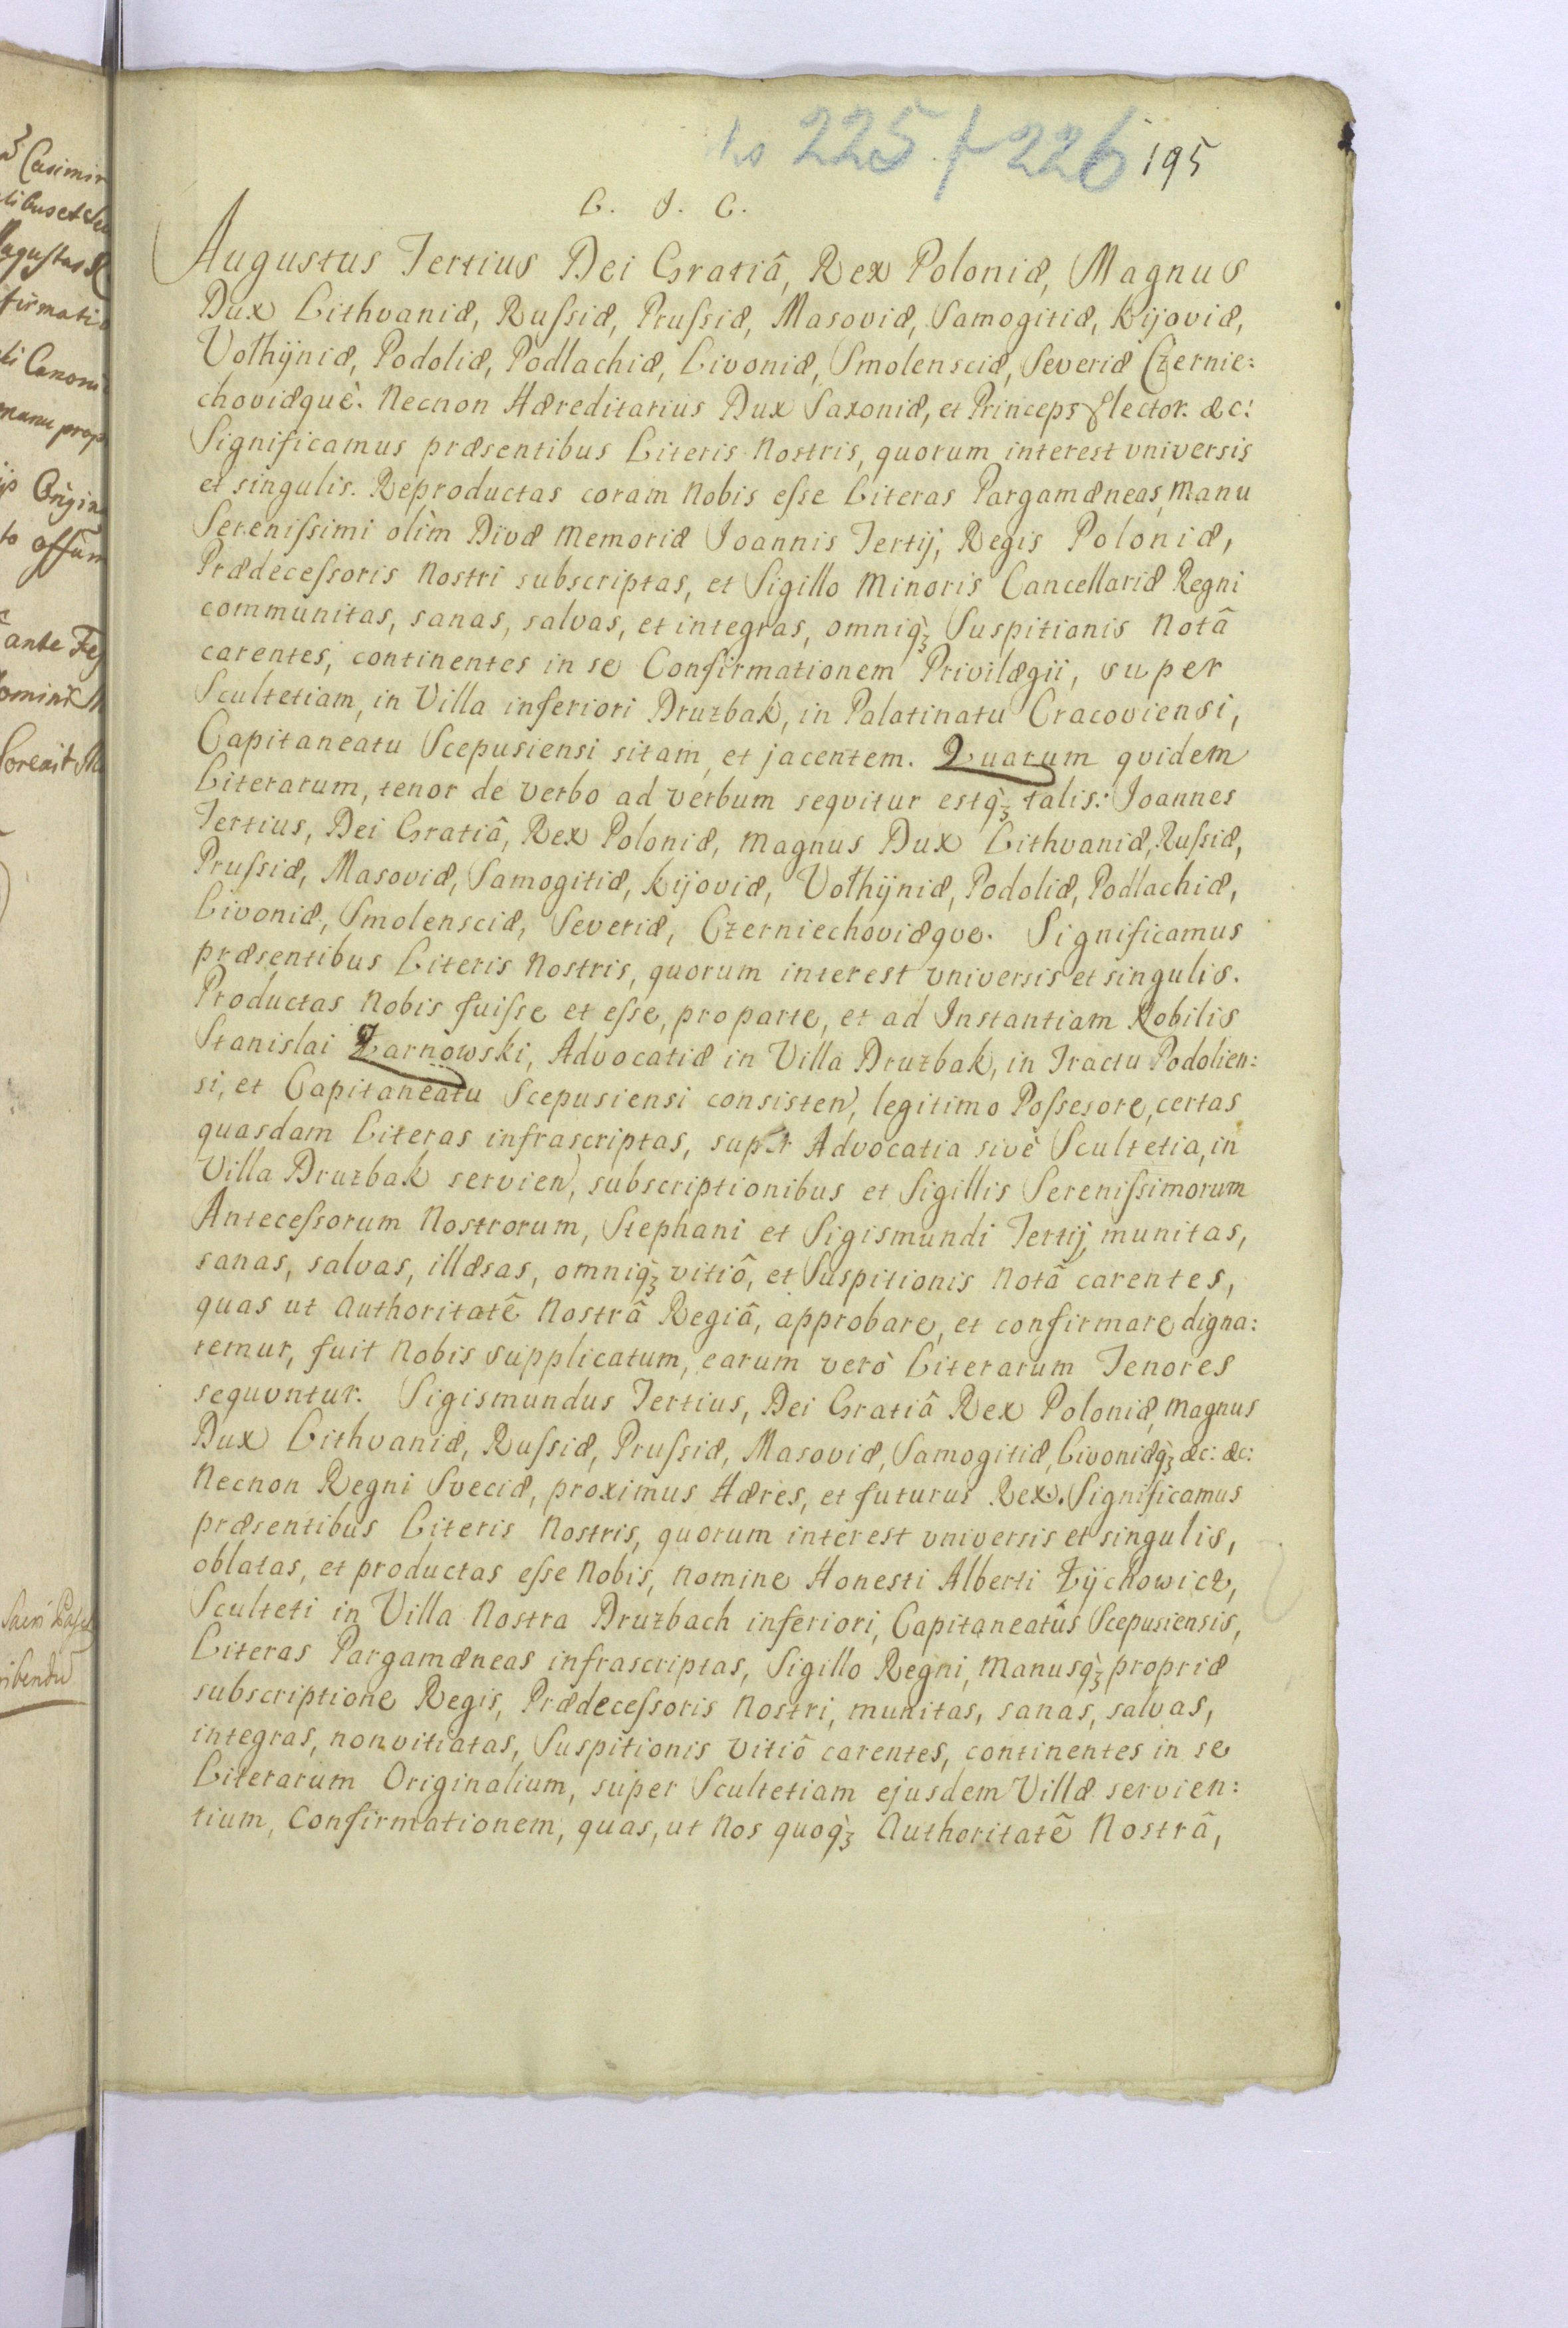 225 / 226 195
C. I. C.
Augustus Tertius Dei Gratiâ, Rex Poloniæ, Magnus
Dux Lithvaniæ, Russiæ, Prussiæ, Masoviæ, Samogitiæ, Kijoviæ,
Volhÿniæ, Podoliæ, Podlachiæ, Livoniæ, Smolensciæ, Severiæ Czernie:
choviæquè. Necnon Hæreditarius Dux Saxoniæ, et Princeps Elector. &c:
Significamus præsentibus Literis Nostris, quorum interest vniversis
et singulis. Reproductas coram Nobis esse Literas Pargamæneas, Manu
Serenissimi olim Divæ Memoriæ Joannis Tertij, Regis Poloniæ,
Prædecessoris Nostri subscriptas, et Sigillo Minoris Cancellariæ Regni
communitas, sanas, salvas, et integras, omniq̀ꝫ Suspitionis Notâ
carentes, continentes in se Confirmationem Privilægii, super
Scultetiam, in Villa inferiori Druzbak, in Palatinatu Cracoviensi,
Capitaneatu Scepusiensi sitam, et jacentem. Quarum qvidem
Literarum, tenor de verbo ad verbum seqvitur estq̀ꝫ talis: Joannes
Tertius, Dei Gratiâ, Rex Poloniæ, Magnus Dux Lithvaniæ, Russiæ,
Prussiæ, Masoviæ, Samogitiæ, Kijoviæ, Volhÿniæ, Podoliæ, Podlachiæ,
Livoniæ, Smolensciæ, Severiæ, Czerniechoviæqve. Significamus
præsentibus Literis Nostris, quorum interest vniversis et singulis.
Productas Nobis fuisse et esse, pro parte, et ad Instantiam Nobilis
Stanislai Żarnowski, Advocatiæ in Villa Druzbak, in Tractu Podolien:
si, et Capitaneatu Scepusiensi consisten, legitimo Possesore, certas
quasdam Literas infrascriptas, super Advocatia sivè Scultetia, in
Villa Druzbak servien, subscriptionibus et Sigillis Serenissimorum
Antecessorum Nostrorum, Stephani et Sigismundi Tertij, munitas,
sanas, salvas, illæsas, omniq̀ꝫ vitiô, et Suspitionis Notâ carentes,
quas ut Authoritatê Nostrâ Regiâ, approbare, et confirmare digna:
remur, fuit Nobis supplicatum, earum verò Literarum Tenores
sequvntur. Sigismundus Tertius, Dei Gratiâ Rex Poloniæ, Magnus
Dux Lithvaniæ, Russiæ, Prussiæ, Masoviæ, Samogitiæ, Livoniæq̀ꝫ &c: &c:
Necnon Regni Sveciæ, proximus Hæres, et futurus Rex. Significamus
præsentibus Literis Nostris, quorum interest vniversis et singulis,
oblatas, et productas esse Nobis, nomine Honesti Alberti Zÿchowicz,
Sculteti in Villa Nostra Druzbach inferiori, Capitaneatûs Scepusiensis,
Literas Pargamæneas infrascriptas, Sigillo Regni, Manusq̀ꝫ propriæ
subscriptione Regis, Prædecessoris Nostri, munitas, sanas, salvas,
integras, nonvitiatas, Suspitionis vitiô carentes, continentes in se
Literarum Originalium, super Scultetiam ejusdem Villæ servien:
tium, Confirmationem, quas, ut Nos quoq̀ꝫ Authoritatê Nostrâ,